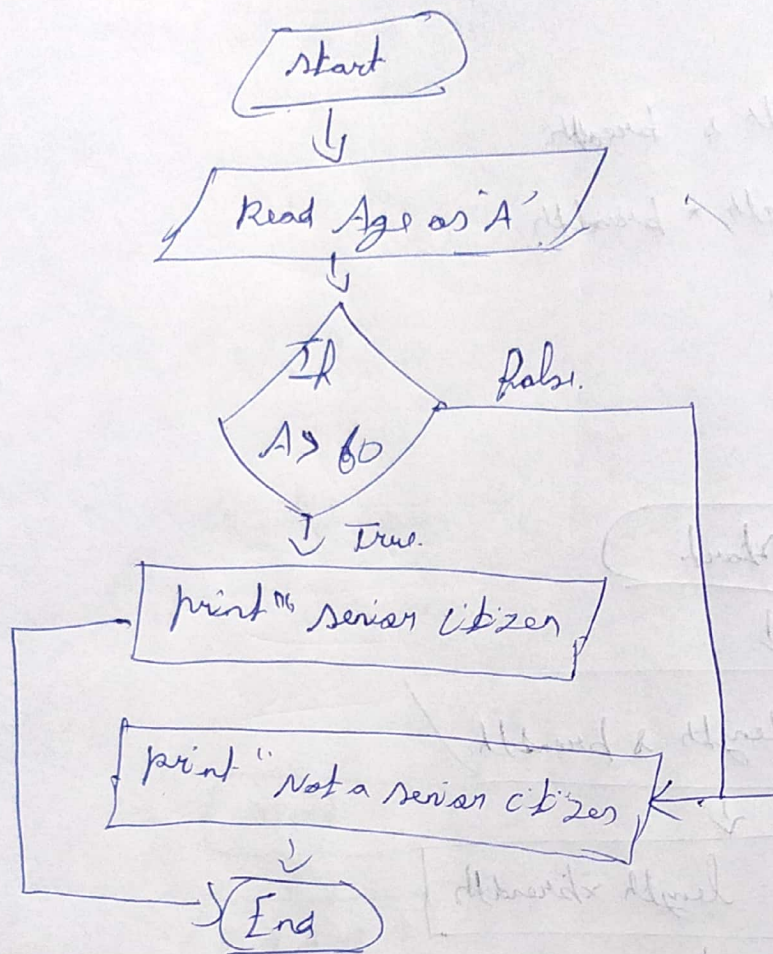 start
Read Age as 'A'
If
A > 60
False.
True.
print " senior citizen
print " Not a senior citizen
End